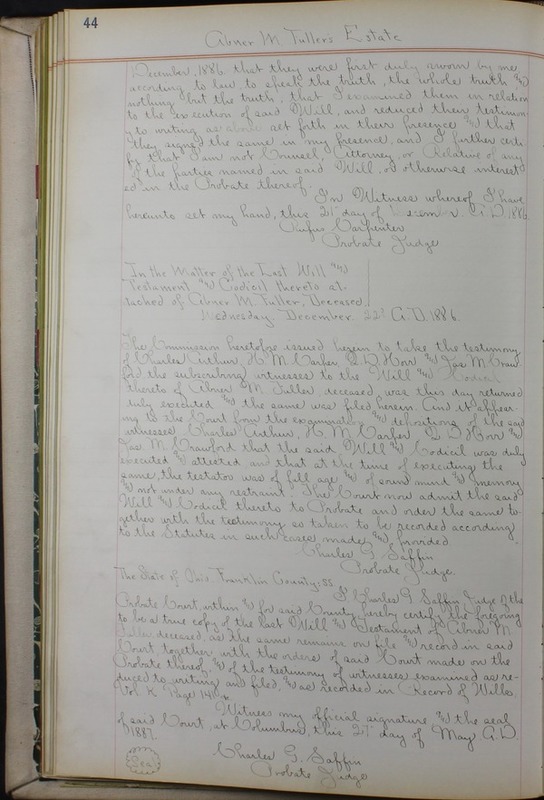 44
Abner M. Fuller's Estate
December, 1886. that they were first duly sworn by me
according to law to speak the truth, the whole truth &
nothing but the truth, that I examined them in relation
to the execution of said Will, and reduced their testimon
y to writing as above set forth in their presence & that
they signed the same in my presence, and I further certi
fy that I am not Counsel, Attorney, or Relative of any
of the parties named in said Will, or otherwise interest
ed in the Probate thereof.
In Witness whereof I have
hereunto set my hand, this 21st day of December. A.D. 1886
Rufus Carpenter
Probate Judge
In the Matter of the Last Will &
Testament & Codicil thereto at-
tached of Abner M. Fuller, Deceased
Wednesday. December. 22d A.D. 1886.
The Commission heretofore issued herein to take the testimony
of Charles Arthur, H. M. Carper, Q. D. Horr & Jas. M. Craw
ford the subscribing witnesses to the Will & Codicil
thereto of Abner M. Fuller deceased, was this day returned
duly executed & the same was filed herein. And it appear-
ing to the Court from the examination & depositions of the said
witnesses Charles Arthur, H. M. Carper Q. D. Horr &
Jas M. Crawford that the said Will & Codicil was duly
executed & attested and that at the time of executing the
same, the testator was of full age & of sound mind & memory
& not under any restraint. The Court now admit the said
Will & Codicil thereto to Probate and order the same to-
gether with the testimony so taken to be recorded according
to the Statutes in such cases made & provided.
Charles G. Saffin
Probate Judge.
The State of Ohio. Franklin County: ss.
I Charles G. Saffin Judge of the
Probate Court, within & for said County, hereby certify the foregoing
to be a true copy of the last Will & Testament of Abner M.
Fuller, deceased, as the same remains on file & record in said
Court, together with the orders of said Court made on the
Probate thereof & of the testimony of witnesses examined as re-
duced to writing and filed, & as recorded in Record of Wills.
Vol K. Page
Witness my official signature & the seal
of said Court, at Columbus, this day of May A.D.
1887.
Charles G. Saffin
Probate Judge
Seal